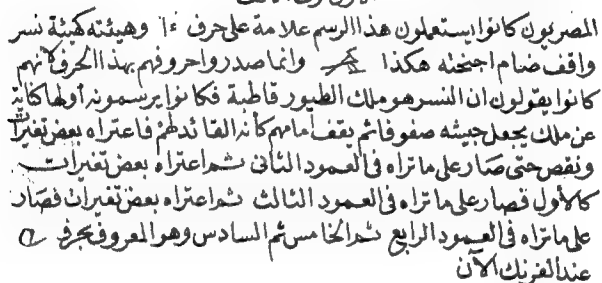 المصريون كانوا يستعملون هذا الرسم علامة على حرف ءا وهيئته كهيئة نسر
واقف ضام اجنحته هكذا وانما صدروا حروفهم بهذا الحرف لانهم
كانوا يقولون ان النسر هو ملك الطيور قاطبة فكانوا يرسمونه أولها كناية
عن ملك يجعل جيشه صفوفا ثم يقف أمامهم كأنه القائد لهم فاعتراه بعض تغيرات
ونقص حتى صار على ما تراه في العمود الثانى ثم اعتراه بعض تغيرات
كالأول فصار على ما تراه فى العمود الثالث ثم اعتراه بعض تغيرات فصار
على ما تراه فى العمود الرابع ثم الخامس ثم السادس وهو المعروف بحرف a
عند الفرنك الآن